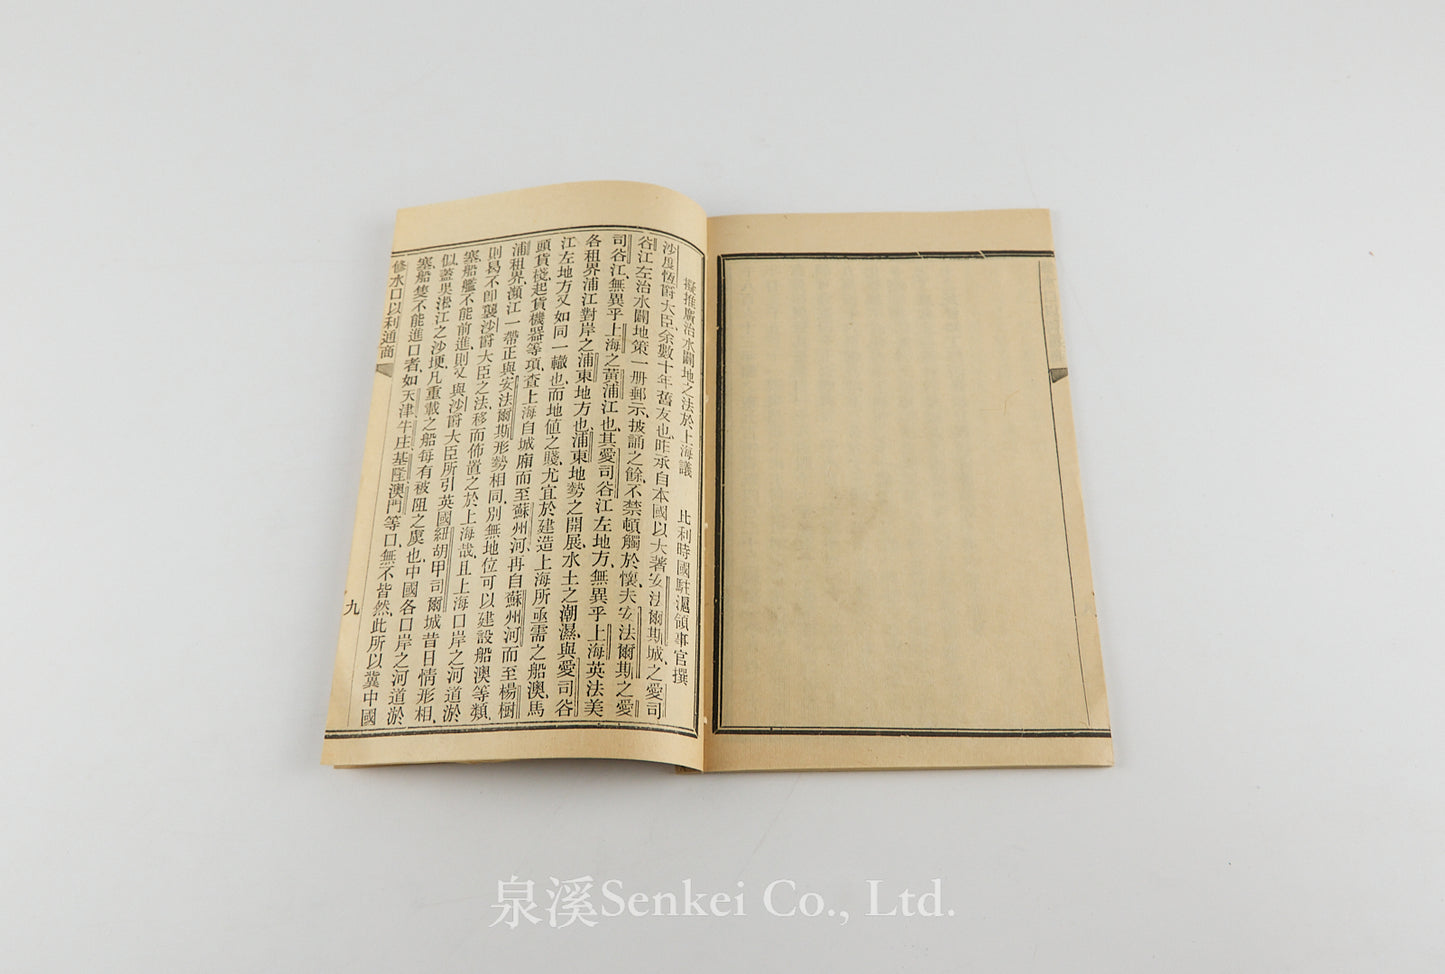 擬推廣治水闢地之法於上海議　比利時國駐滬領事官撰
沙度恆爵大臣、余數十年舊友也、昨承自本國以大著安法爾斯城、之愛司
谷江左治水闢地策一册郵示、披誦之餘、不禁頓觸於懷、夫安法爾斯之愛
司谷江、無異乎上海之黃浦江也、其愛司谷江左地方、無異乎上海英法美
各租界浦江對岸之浦東地方也、浦東地勢之開展、水土之潮濕、與愛司谷
江左地方又如同一轍也、而地值之賤、尤宜於建造上海所亟需之船澳、馬
頭貨棧、起貨機器等項、查上海自城廂而至蘇州河、再自蘇州河而至楊樹
浦租界、瀕江一帶正與安法爾斯形勢相同、別無地位可以建設船澳等類、
則曷不卽襲沙爵大臣之法、移而佈置之於上海哉、且上海口岸之河道淤
塞、船艦不能前進、則又與沙爵大臣所引英國紐胡甲司爾城昔日情形相
似、蓋吳淞江之沙埂、凡重載之船每有被阻之虞也、中國各口岸之河道淤
塞、船隻不能進口者、如天津牛庄基隆澳門等口、無不皆然、此所以冀中國
修水口以利通商
九
泉溪Senkei Co., Ltd.